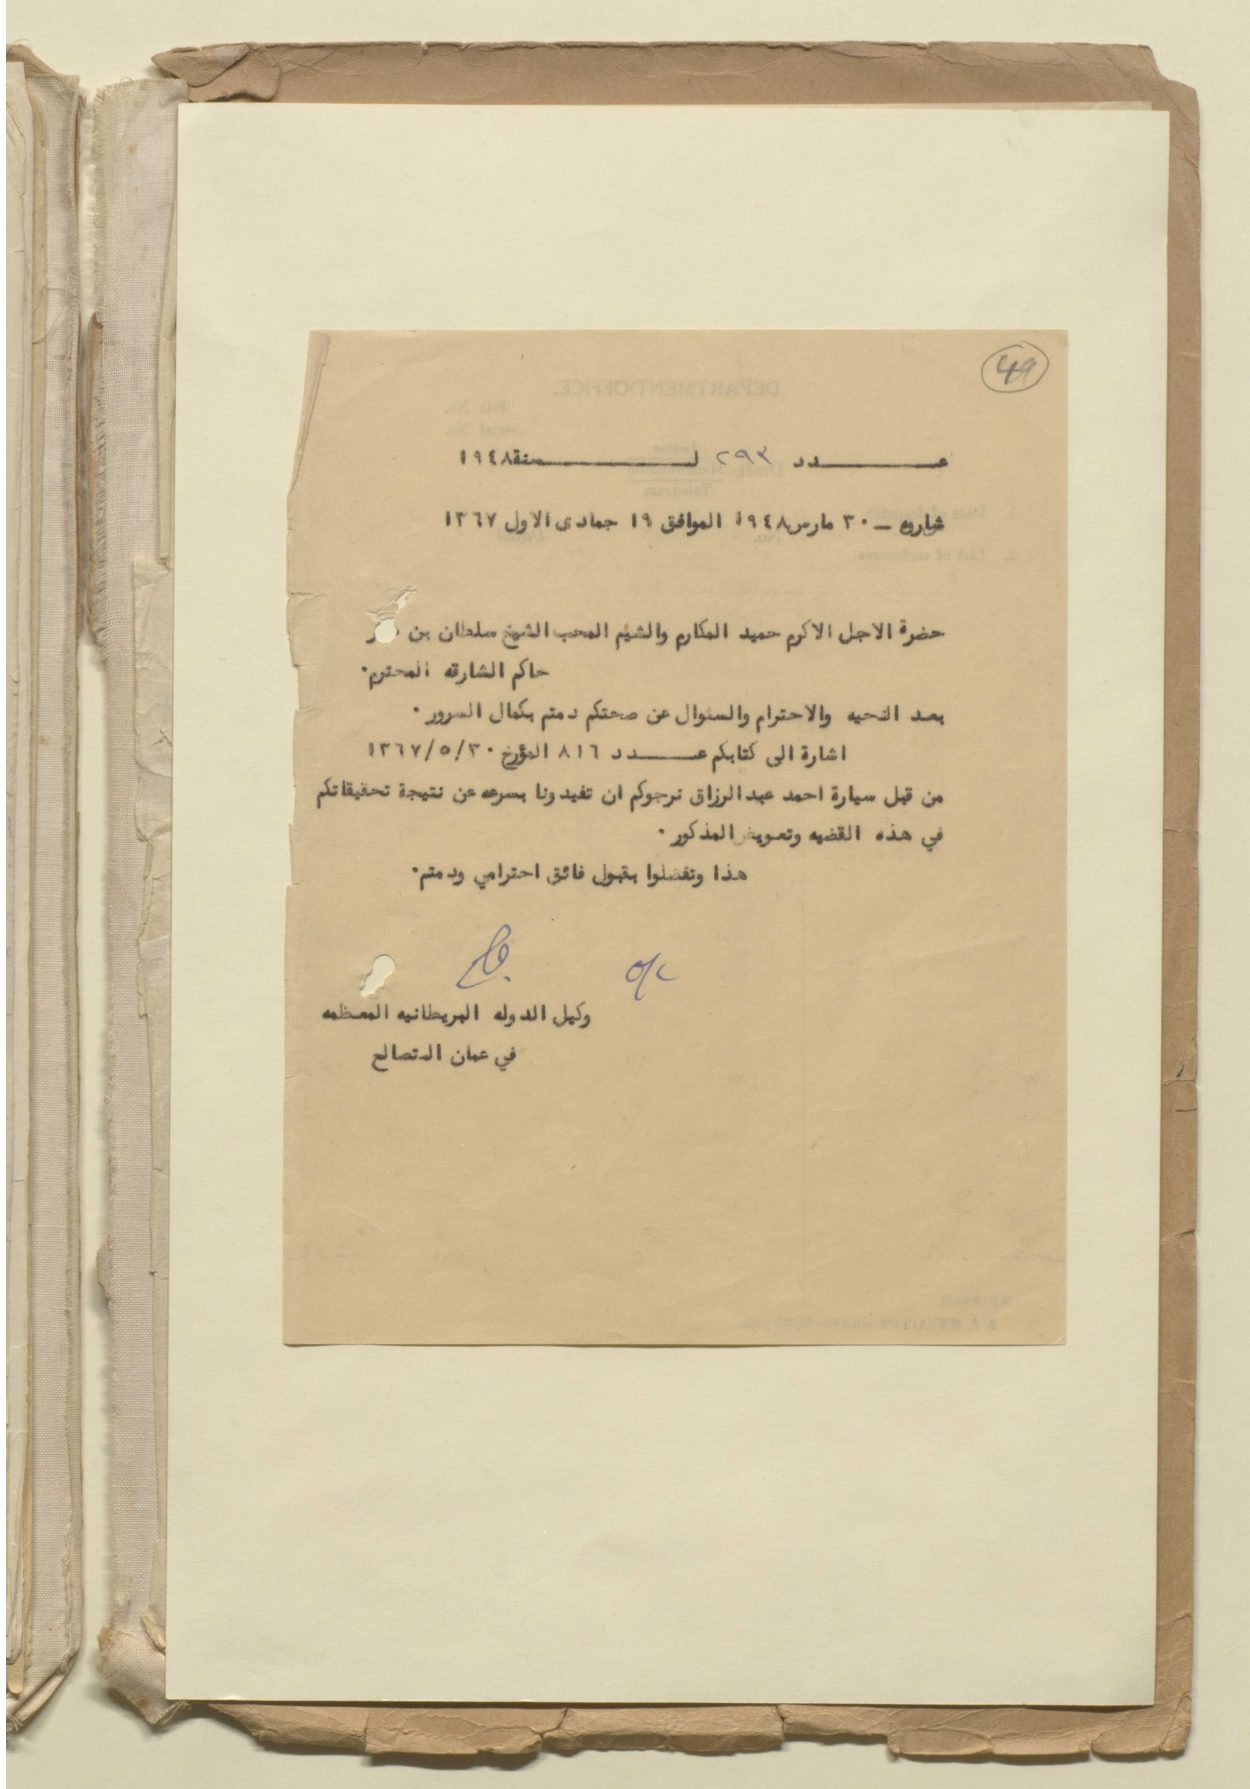 49
عــــدد ٢٩٣ لــــــــسنة ١٩٤٨
شارجه ـ ٣٠ مارس ١٩٤٨ الموافق ١٩ جمادى الاول ١٣٦٧
حضرة الاجل الاكرم حميد المكارم والشيم المحب الشيخ سلطان بن
حاكم الشارقه المحترم٠
بعد التحيه والاحترام والسئوال عن صحتكم دمتم بكمال السرور ٠
اشارة الى كتابكم عــــدد ٨١٦ المؤرخ ١٣٦٧/٥/٣٠
من قبل سيارة احمد عبد الرزاق نرجوكم ان تفيدونا بسرعه عن نتيجة تحقيقاتكم
في هذه القضيه وتعويض المذكور ٠
هذا وتفضلوا بقبول فائق احترامي ودمتم٠
وكيل الدوله البريطانيه المعظمه
في عمان المتصالح